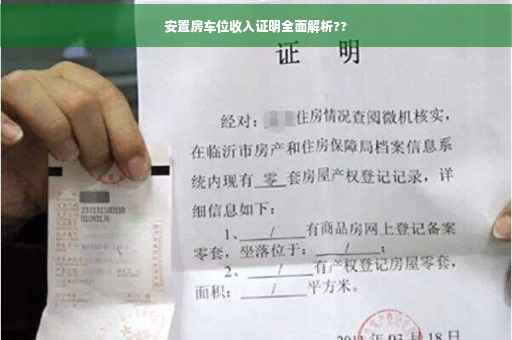 安置房车位收入证明全面解析??
证 明
经对：住房情况查阅微机核实，
在临沂市房产和住房保障局档案信息系
统内现有 零 套房屋产权登记记录，详
细信息如下：
1、 / 有商品房网上登记备案
零套，坐落位于： / ；
2、 / 有产权登记房屋零套，
面积： / 平方米。
年 03 月 18 日